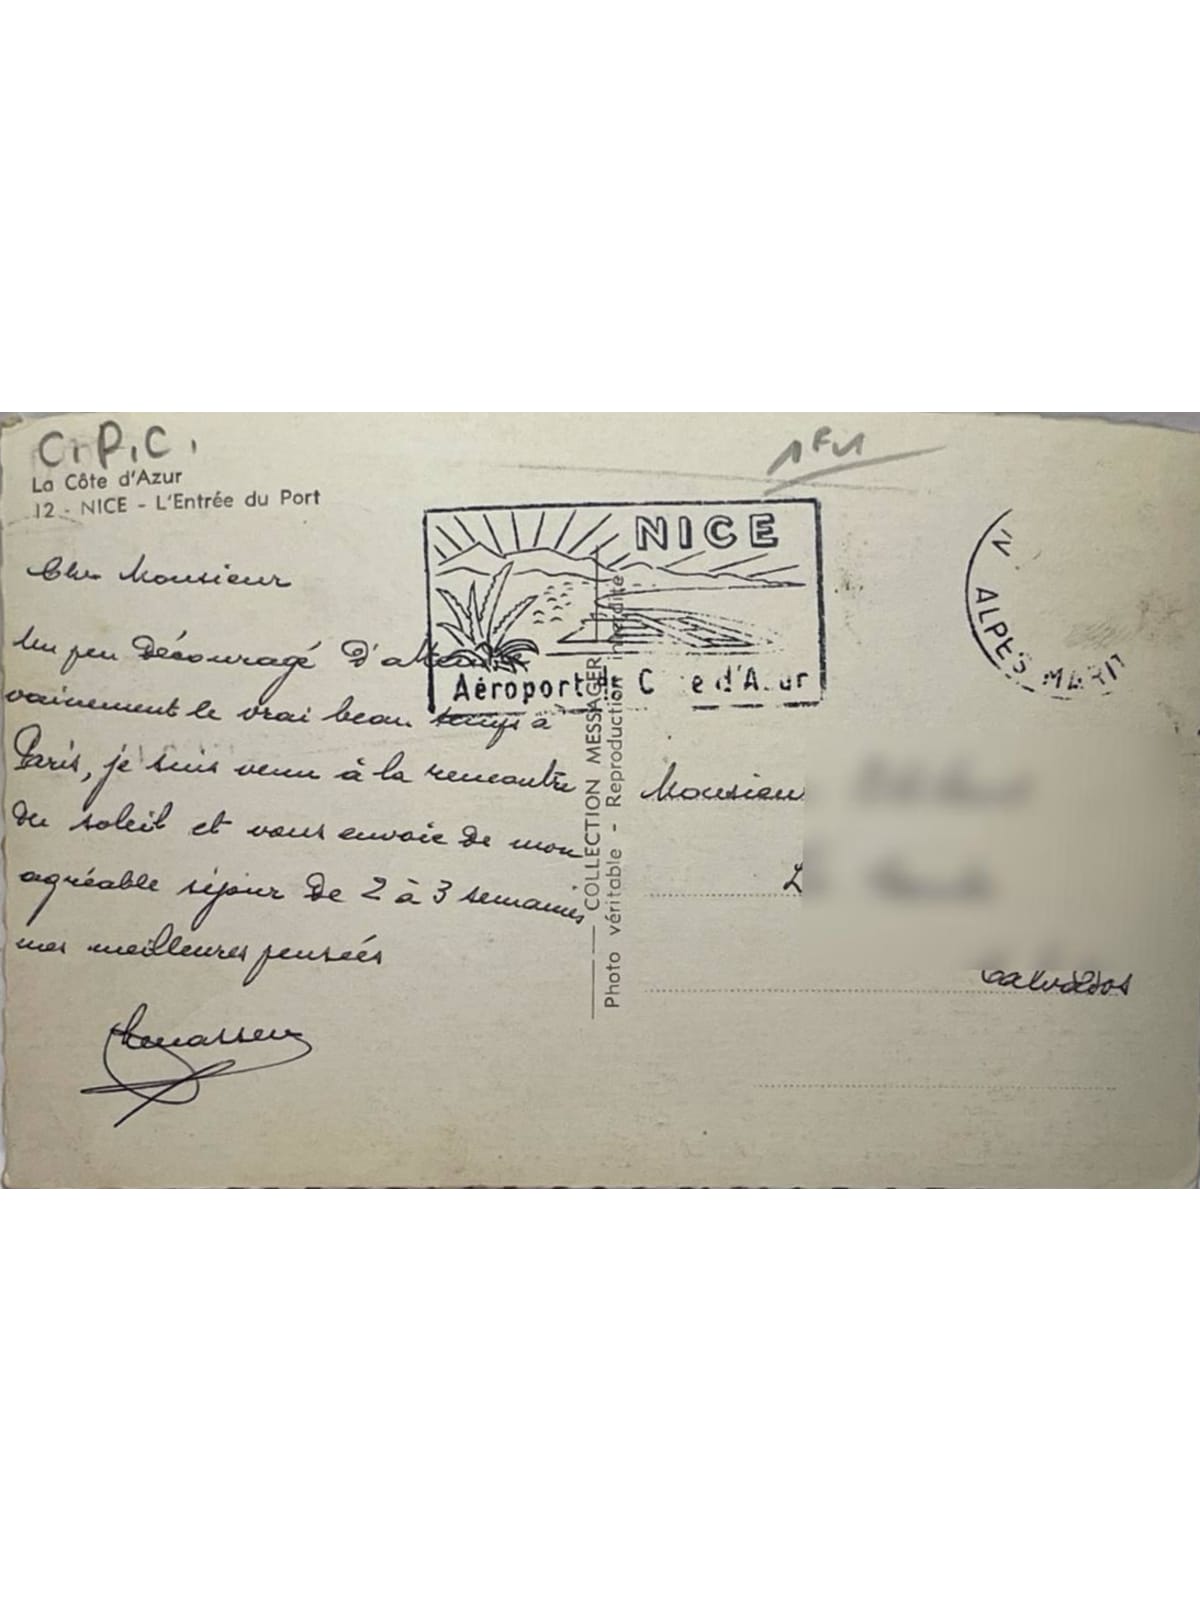 C.P.C.
La Côte d'Azur
12 - NICE - L'Entrée du Port
1F
NICE
Aéroport de C e d'Azur
N
ALPES MARIT
Cher Monsieur
Un peu Découragé D'attendre
vainement le vrai beau temps à
Paris, je suis venu à la rencontre
du soleil et vous envoie de mon
agréable séjour de 2 à 3 semaines
mes meilleures pensées
COLLECTION MESSAGER
Photo véritable - Reproduction interdite
Monsieur
L
Calvados